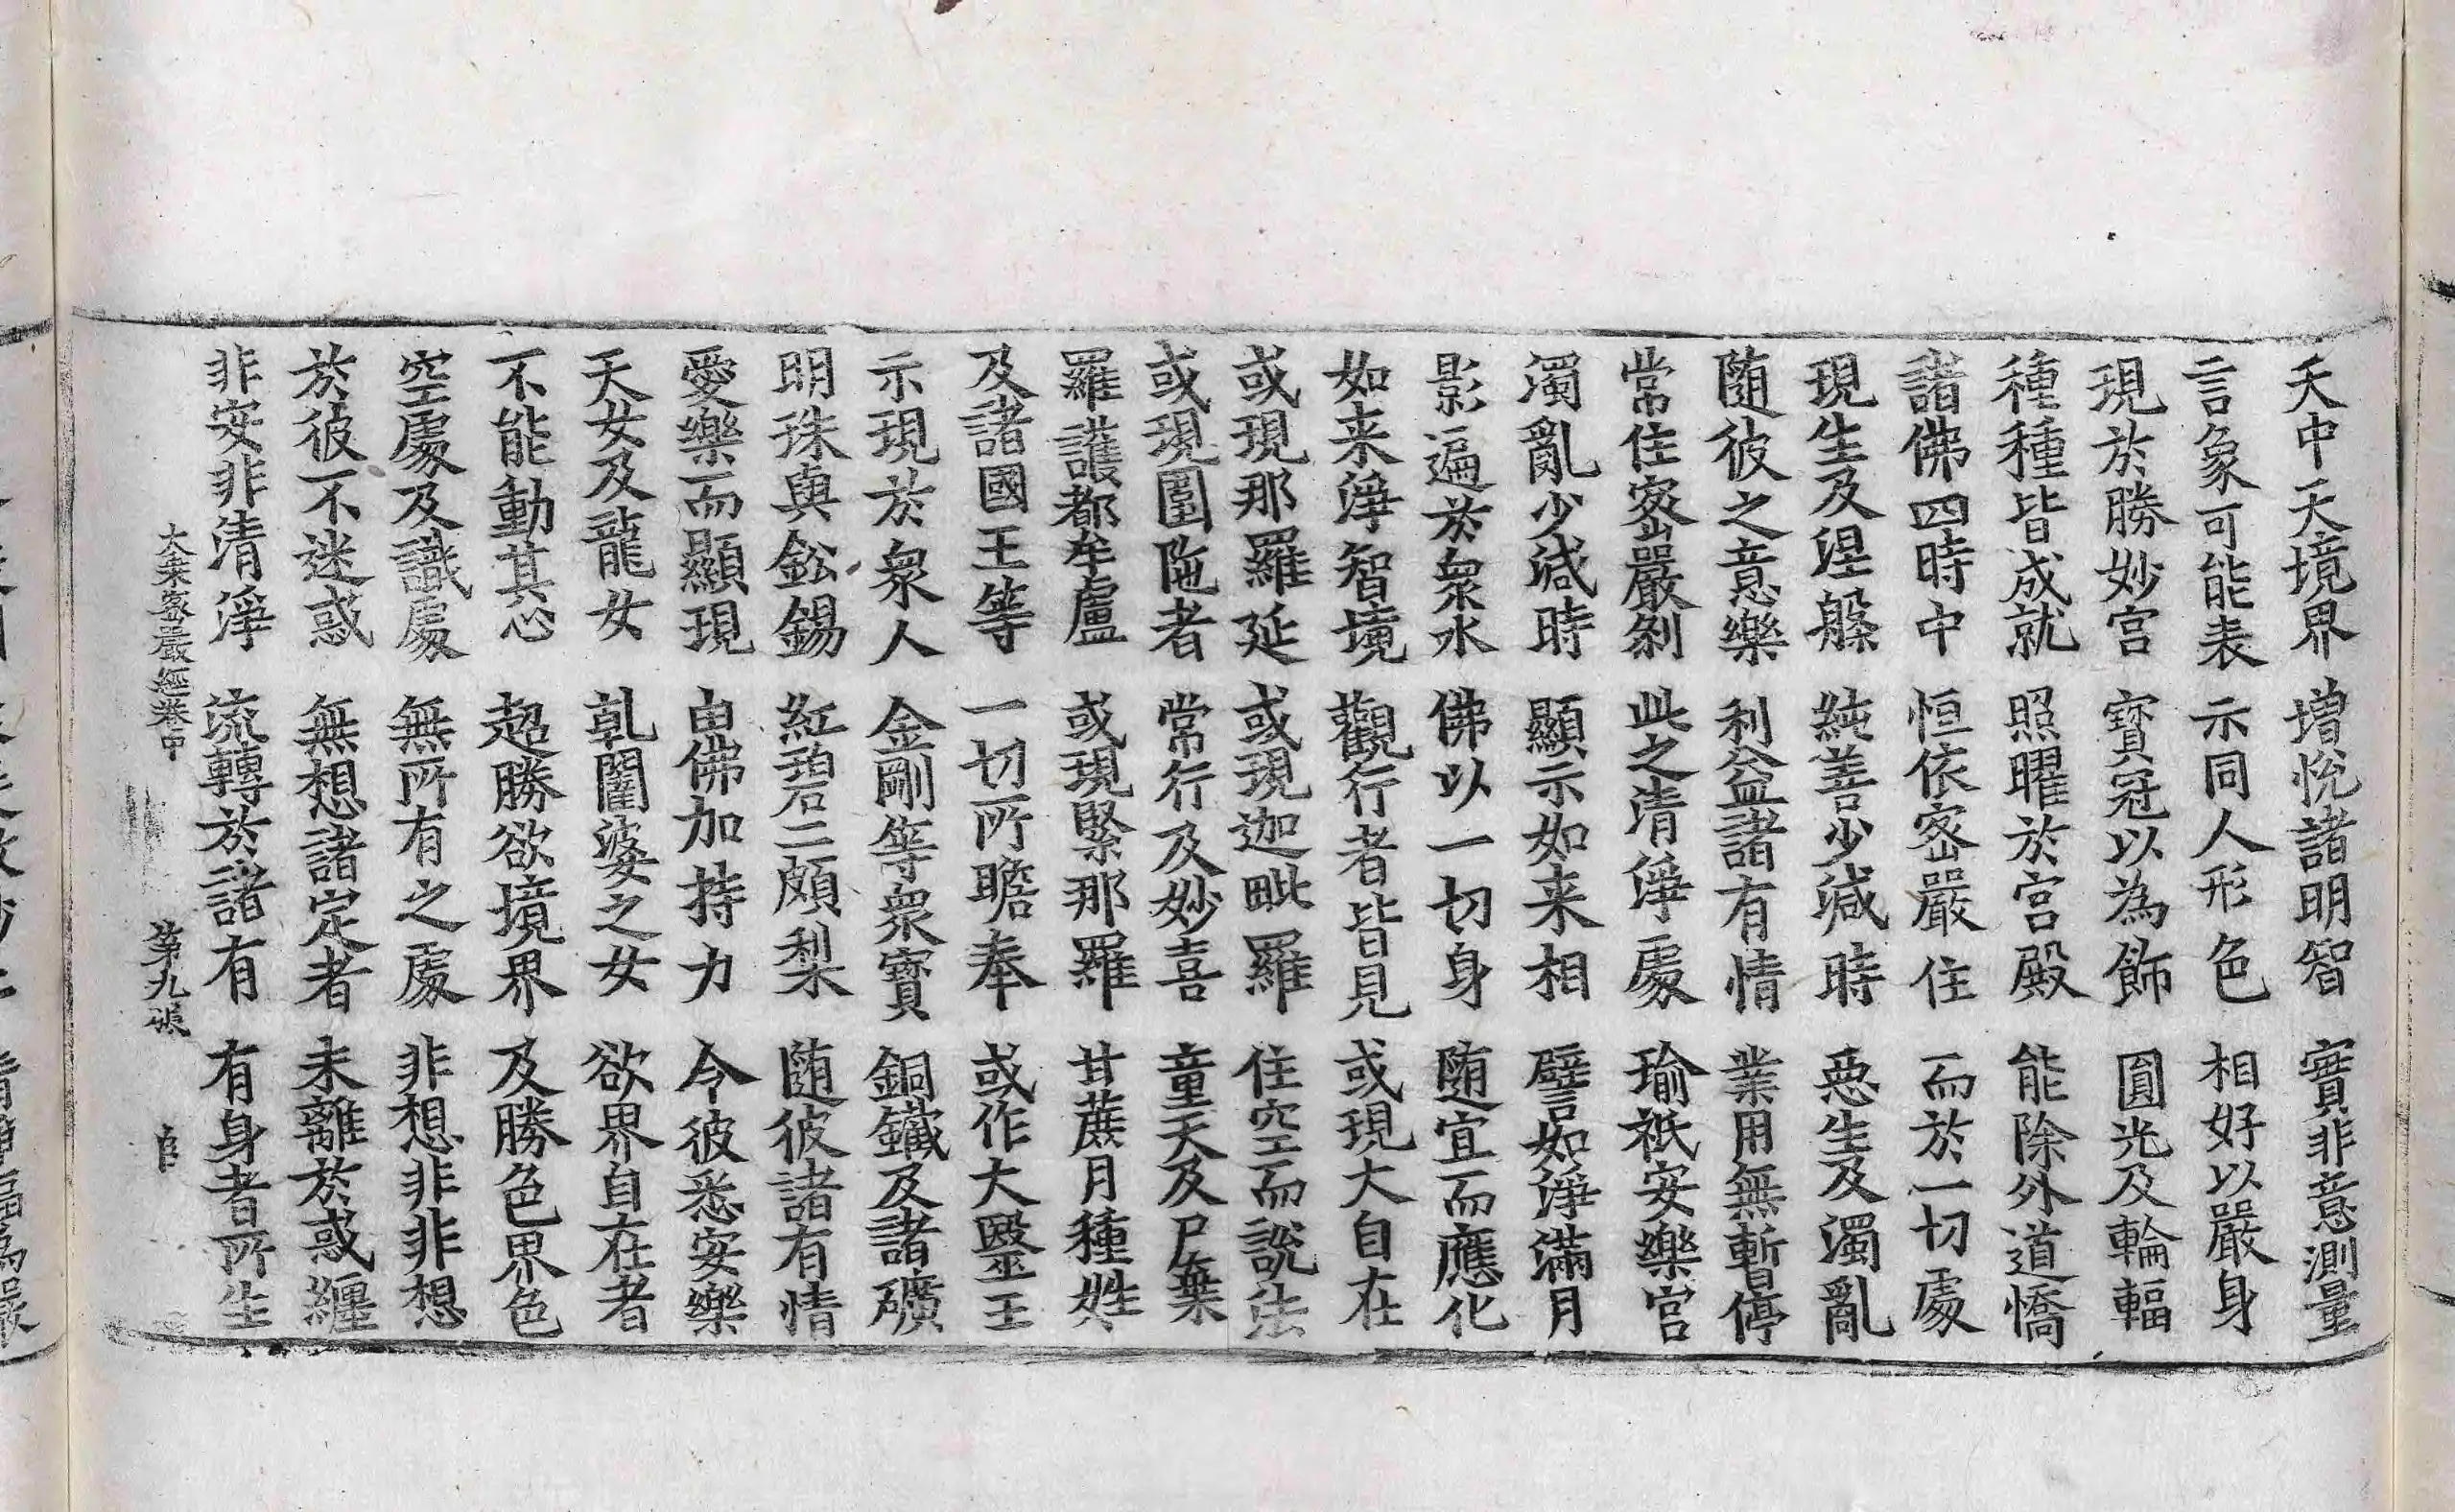 天中天境界 增悅諸明智 實非意測量
言象可能表 示同人形色 相好以嚴身
現於勝妙宮 寶冠以為飾 圓光及輪輻
種種皆成就 照曜於宮殿 能除外道憍
諸佛四時中 恒依密嚴住 而於一切處
現生及涅槃 純善少減時 惡生及濁亂
隨彼之意樂 利益諸有情 業用無暫停
常住密嚴剎 此之清淨處 瑜祇安樂宮
濁亂少減時 顯示如来相 譬如淨滿月
影遍於衆水 佛以一切身 隨宜而應化
如来淨智境 觀行者皆見 或現大自在
或現那羅延 或現迦毗羅 住空而說法
或現圍陁者 常行及妙喜 童天及尸棄
羅護都牟盧 或現緊那羅 甘蔗月種姓
及諸國王等 一切所瞻奉 或作大毉王
示現於衆人 金剛等衆寶 銅鐵及諸礦
明珠與鈆錫 紅碧二頗梨 隨彼諸有情
愛樂而顯現 由佛加持力 令彼悉安樂
天女及龍女 乹闥婆之女 欲界自在者
不能動其心 超勝欲境界 及勝色界色
空處及識處 無所有之處 非想非非想
於彼不迷惑 無想諸定者 未離於惑纏
非安非清淨 流轉於諸有 有身者所生
大乘密嚴經卷中 第九張